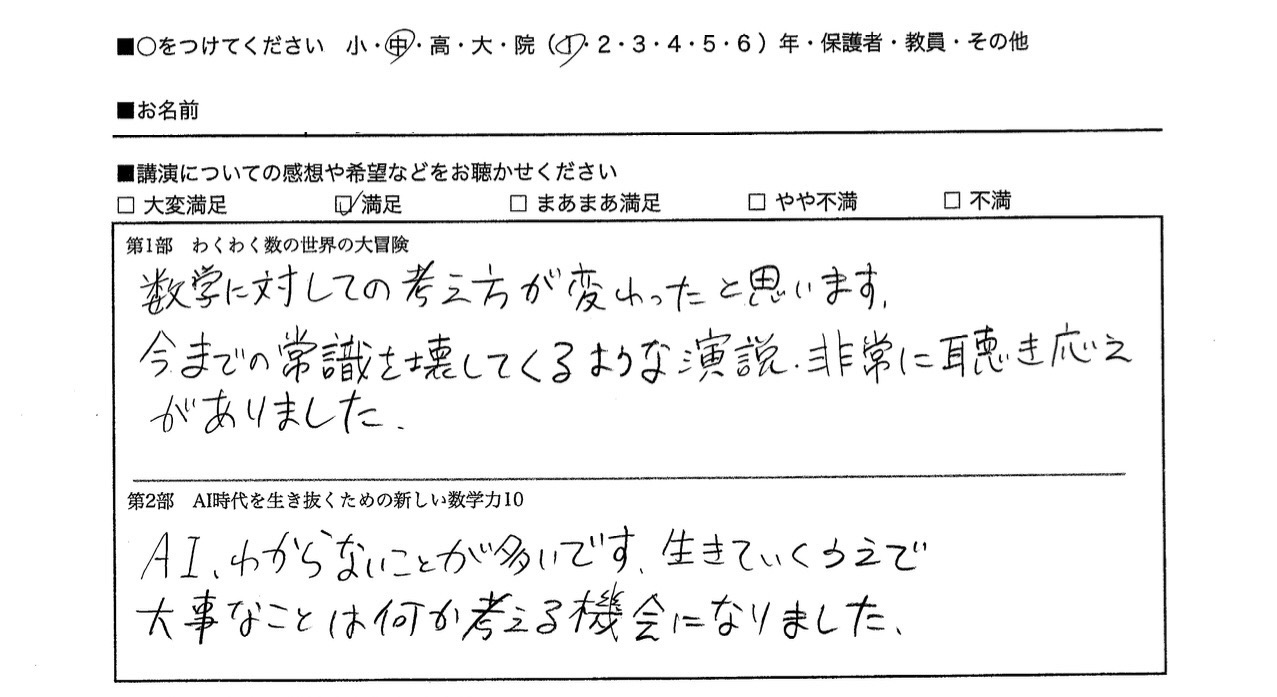 ■○をつけてください 小・中・高・大・院（1・2・3・4・5・6）年・保護者・教員・その他
■お名前
■講演についての感想や希望などをお聴かせください
□ 大変満足 □ 満足 □ まあまあ満足 □ やや不満 □ 不満
第1部 わくわく数の世界の大冒険
数学に対しての考え方が変わったと思います。
今までの常識を壊してくるような演説、非常に聴き応え
がありました。
第2部 AI時代を生き抜くための新しい数学力10
AI、わからないことが多いです。生きていくうえで
大事なことは何か考える機会になりました。